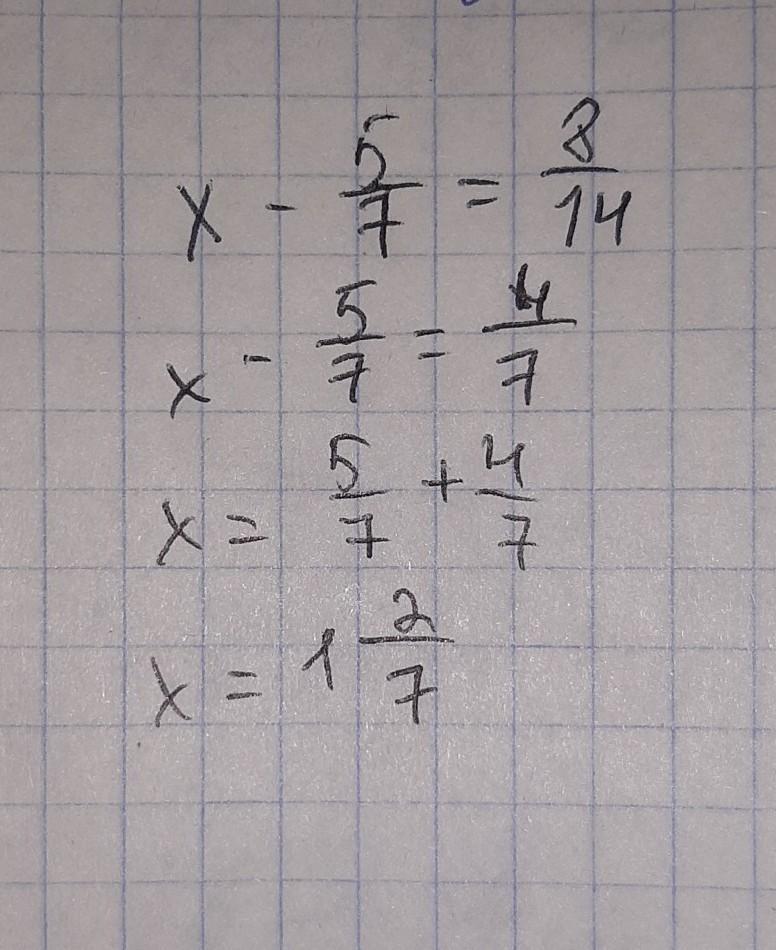 x - 5/7 = 8/14
x - 5/7 = 4/7
x = 5/7 + 4/7
x = 1 2/7